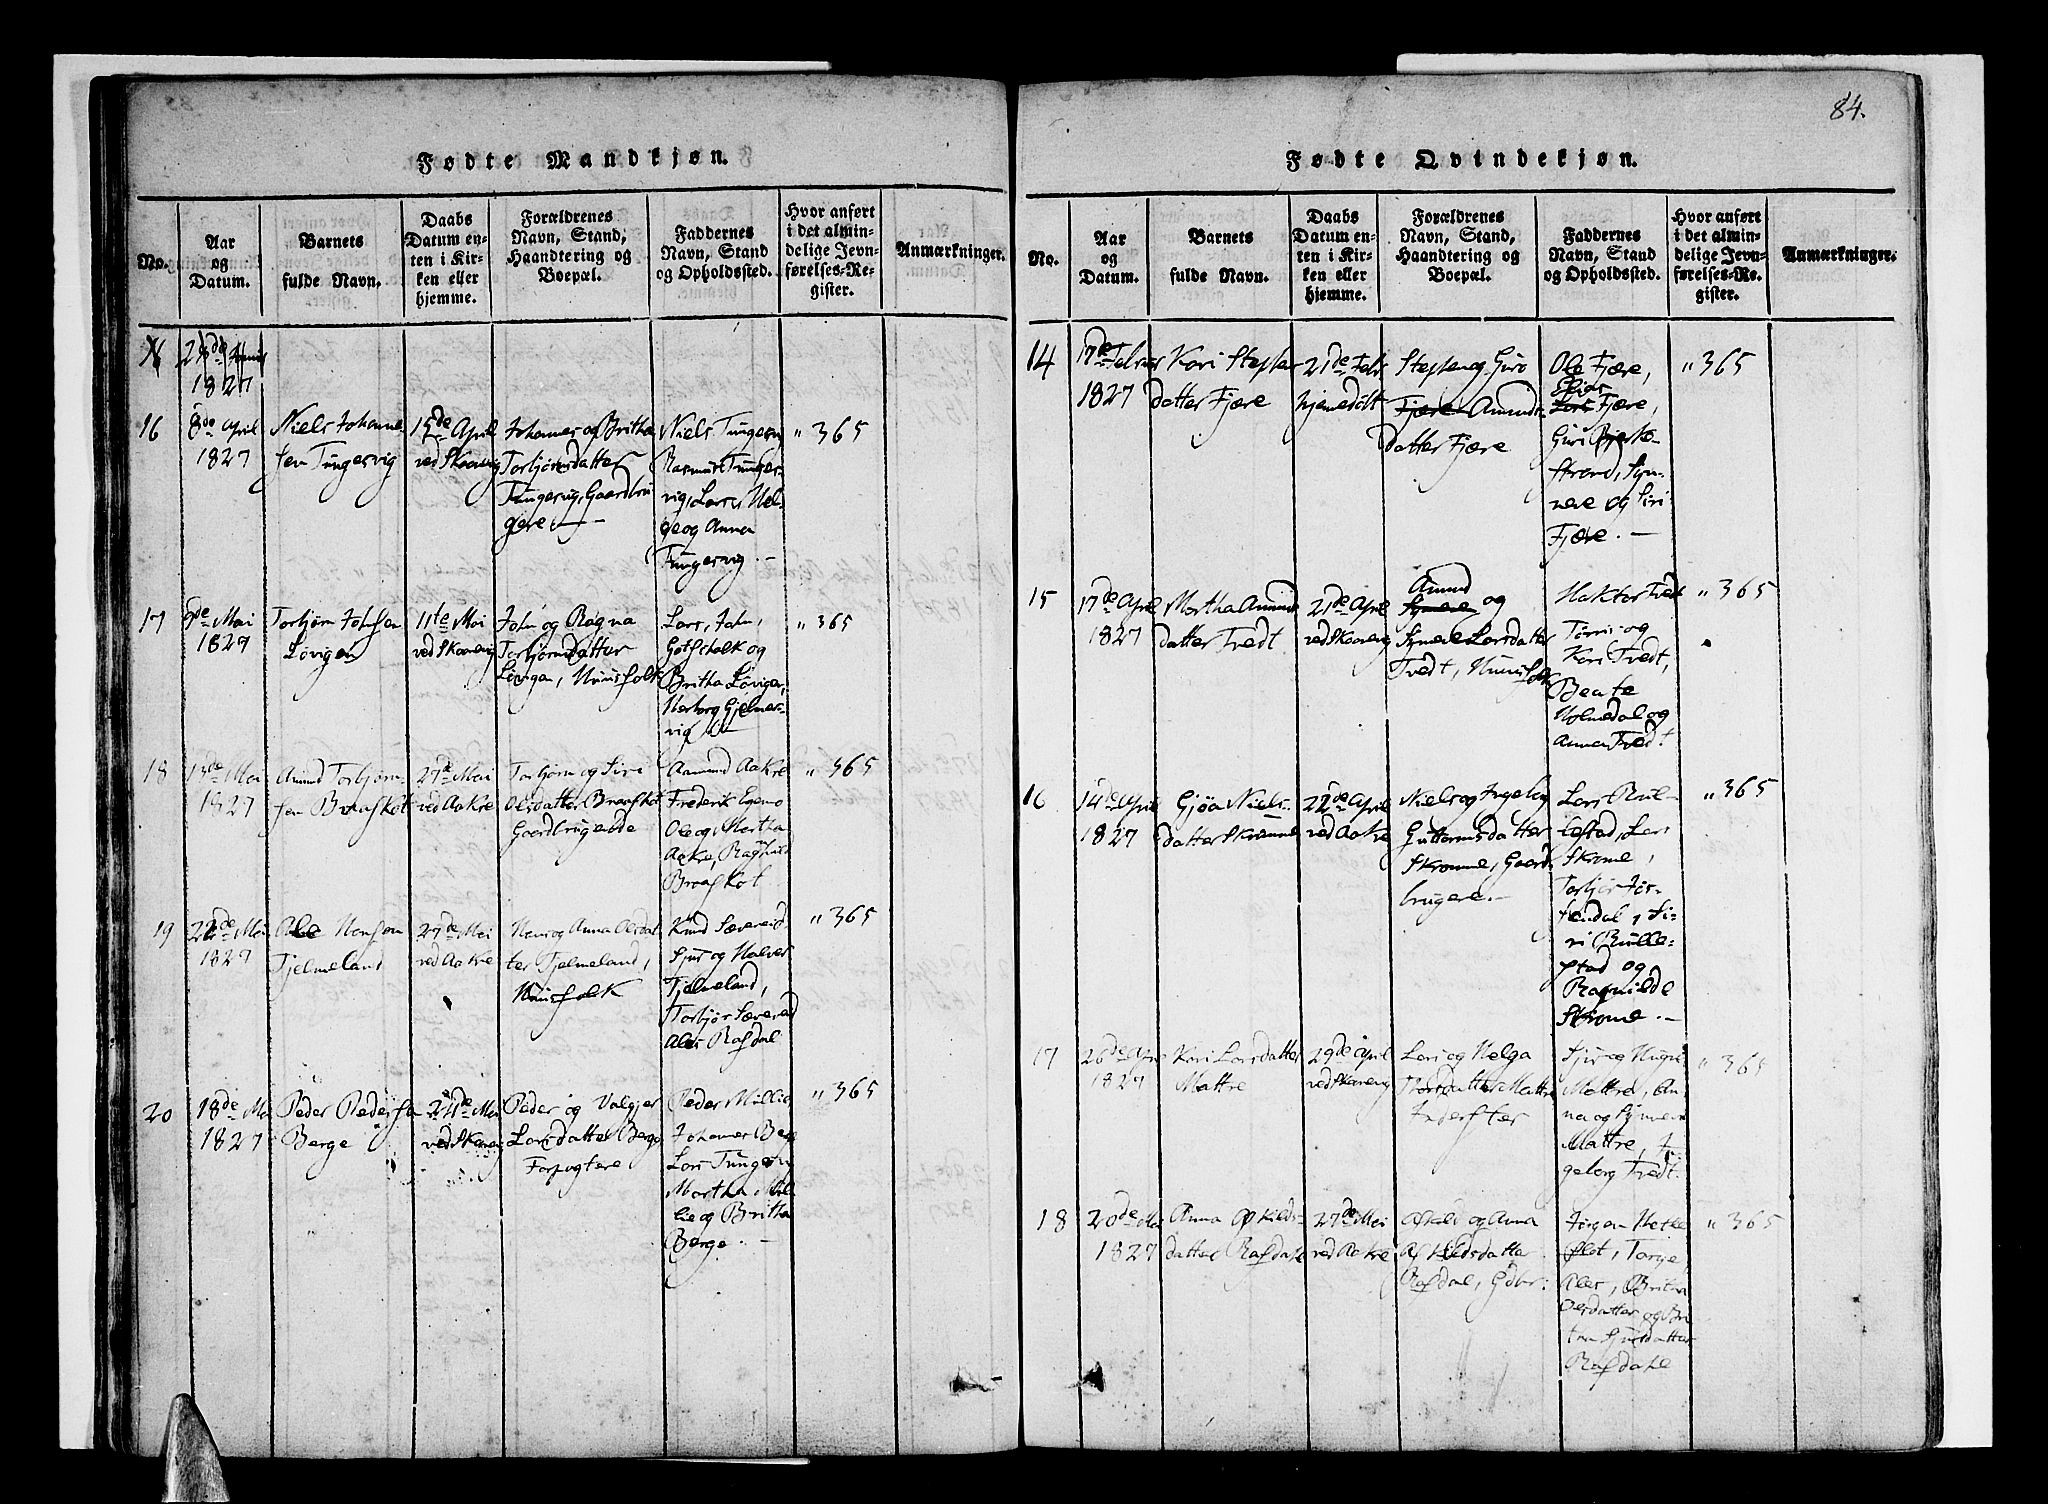 84.
Fødte Mandkjøn.
No.
Aar
og
Datum.
Barnets
fulde Navn.
Daabs
Datum en-
ten i Kir-
ken eller
hjemme.
Forældrenes
Navn, Stand,
Haandtering og
Boepæl.
Faddernes
Navn, Stand
og Opholdssted.
Hvor anført
i det almin-
delige Jevn-
førelses-Re-
gister.
Anmærkninger.
1827
16
8de April
1827
Niels Johanne-
sen Tungesvig
15de April
ved Skaanevig
Johannes og Britha
Torbjørnsdatter
Tungesvig, Gaardbru
gere
Niels Tungesvig
Rasmus Tunges-
vig, Lars, Hel-
ge og Anna
Tungesvig.
" 365
17
6de Mai
1827
Torbjørn Johnsen
Løvigen
11te Mai
ved Skaanevig
John og Ragna
Torbjørnsdatter
Løvigen, Huusfolk
Lars, John,
Gotschalk og
Britha Løvigen,
Herborg Gjelmes-
vig
" 365
18
13de Mai
1827
Amund Torbjørn-
sen Braaskot
27de Mai
ved Aakre
Torbjørn og Siri
Olsdatter Braaskot
Gaardbrugende
Aamund Aakre
Frederik Egeno
Ole og Martha
Aakre, Raghild
Braaskot
" 365
19
22de Mai
1827
Ole Hansøn
Fjelmeland
27de Mai
ved Aakre
Hans og Anna Olsdat
ter Fjelmeland,
Huusfolk
Knud Sævereid
Sjur og Halver
Fjelmeland,
Torbjør Sævereid
Rafdal
" 365
20
18de Mai
1827
Peder Pedersen
Berge
24de Mai
ved Skaanevig
Peder og Valgjer
Larsdatter Berge
Forpagtere
Peder Millie,
Johannes Berge
Lars Tungesvig
Martha Mil-
lie og Britha
Berge.
" 365
Fødte Qvindekjøn.
No.
Aar
og
Datum.
Barnets
fulde Navn.
Daabs
Datum en-
ten i Kir-
ken eller
hjemme.
Forældrenes
Navn, Stand,
Haandtering og
Boepæl.
Faddernes
Navn, Stand
og Opholdssted.
Hvor anført
i det almin-
delige Jevn-
førelses-Re-
gister.
Anmærkninger.
14
17de Febru
1827
Kari Stephen
datter Fjære
21de Febr
hjemedøbt
Stephen og Guro
Fjære Amunds-
datter Fjære
Ole Fjære,
Lars Fjære,
Guri Bjerke-
strand, Syn-
neve og Siri
Fjære.
" 365
15
17de April
1827
Martha Amund
datter Tvedt
21de April
ved Skaanevig
Amund
Synneve og
Synneve Larsdatter
Tvedt, Huusfolk
Haktor Tvedt
Tørris og
Kari Tvedt,
Beate
Holmedal og
Anna Tvedt
" 365
16
14de April
1827
Gjøa Niels-
datter Skromme
22de April
ved Aakre
Niels og Ingeborg
Guttormsdatter
Skromme, Gaard-
brugere.
Lars Rul-
lestad, Lars
Skrome,
Torbjør Jør-
fendal, Si-
ri Rulle-
stad og
Ragnilde
Skrome.
" 365
17
26de April
1827
Kari Larsdatter
Mattre
29de April
ved Skaanevig
Lars og Helga
Thorsdatter Mattre
Inderster
Sjur og
Mattre, An-
na og Synneve
Mattre, In-
geborg Tvedt.
" 365
18
20de Mai
1827
Anna Askilds-
datter Rafdahl
27de Mai
ved Aakre
Askild og Anna
Askildsdatter
Rafdal, Gdbr:
Jørgen
Torge
Britha
Olsdatter og Bri
tha Sjursdatter
Rafdahl
" 365